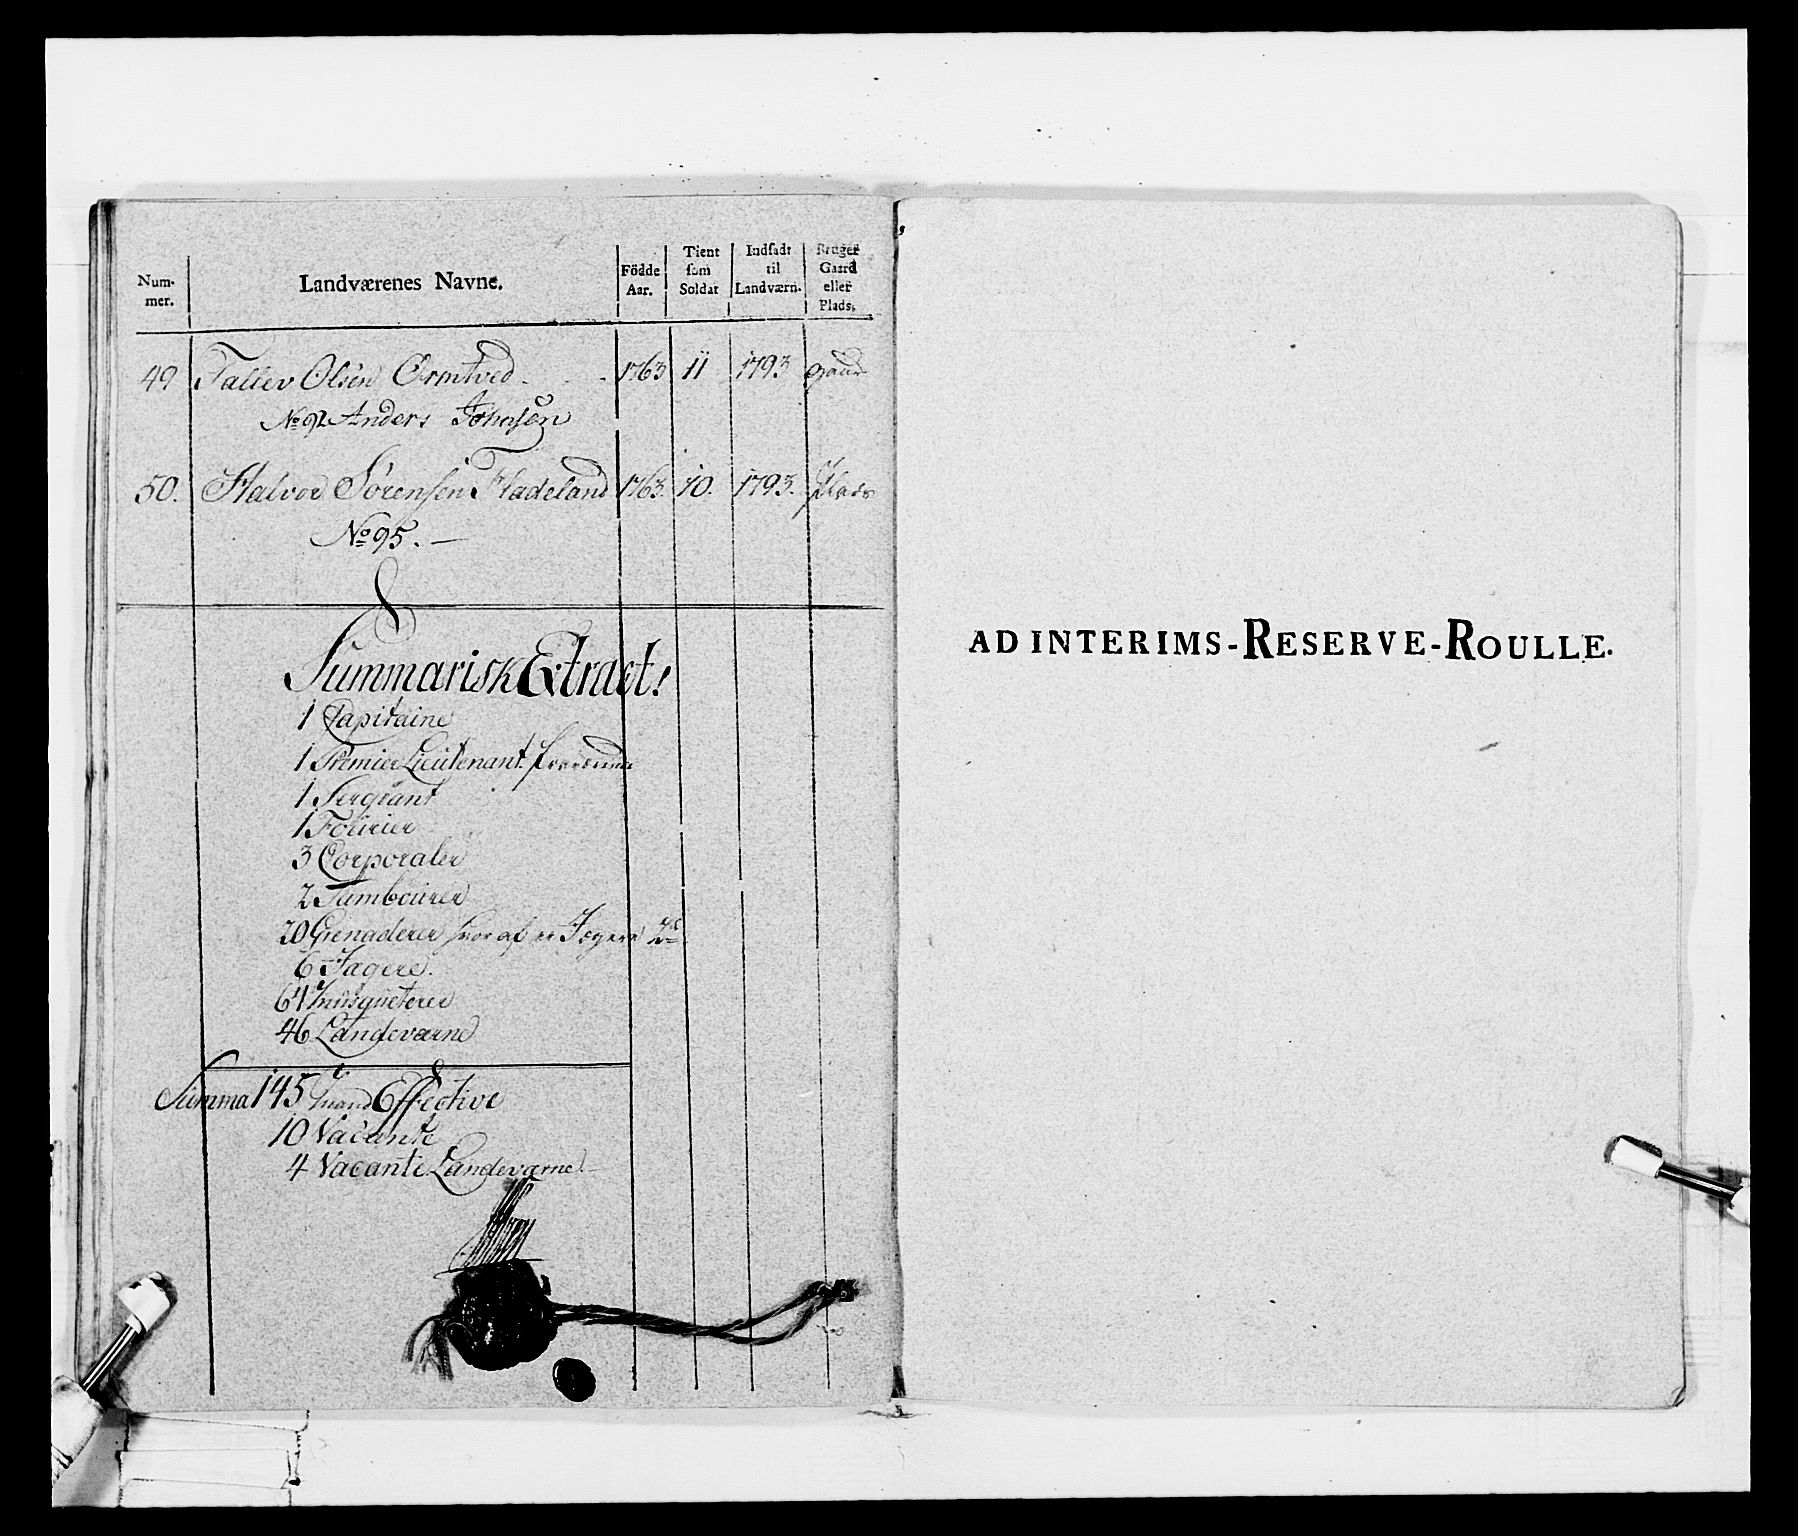 Num-
mer.
Landværenes Navne.
Födde
Aar.
Tient
som
Soldat
Indsadt
til
Landværn.
Bruger
Gaard
eller
Plads.
49 Tallev Olsen Ormtved 1763 11 1793 gaard
No 92 Anders Johnsen
50. Halvor Sørensen Fladeland 1763. 10. 1793. Plads
No 95. —
Summarisk Extract!
1 Capitaine
1 Premier Lieutenant
1 Sergeant
1 Fourier
3 Corporaler
2 Tambourer
20 Grenaderer hvoraf er Jægere 2de
6 Jægere.
64 Musqueterer
46 Landeværne
Summa 145 Mand Effective
10 Vacante
4 Vacante Landeværne.
AD INTERIMS-RESERVE-ROULLE.